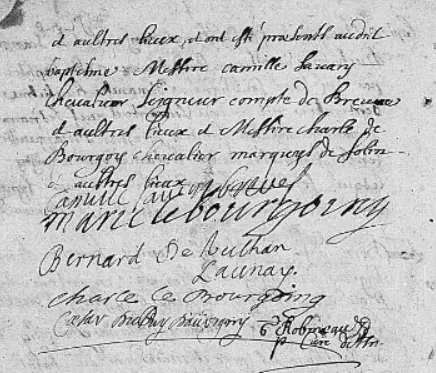 d aultres lieux, d ont esté presents audit
baptesme Messire camille Savary
chevalier Seigneur compte de Breves
d aultres lieux d Messire charle de
Bourgoy chevalier marquys de folin
aultres lieux
Camille Savary
marie lebourgoing
Bernard De
Launay.
charle le Bourgoing
Cæsar
Robineau
p Curé